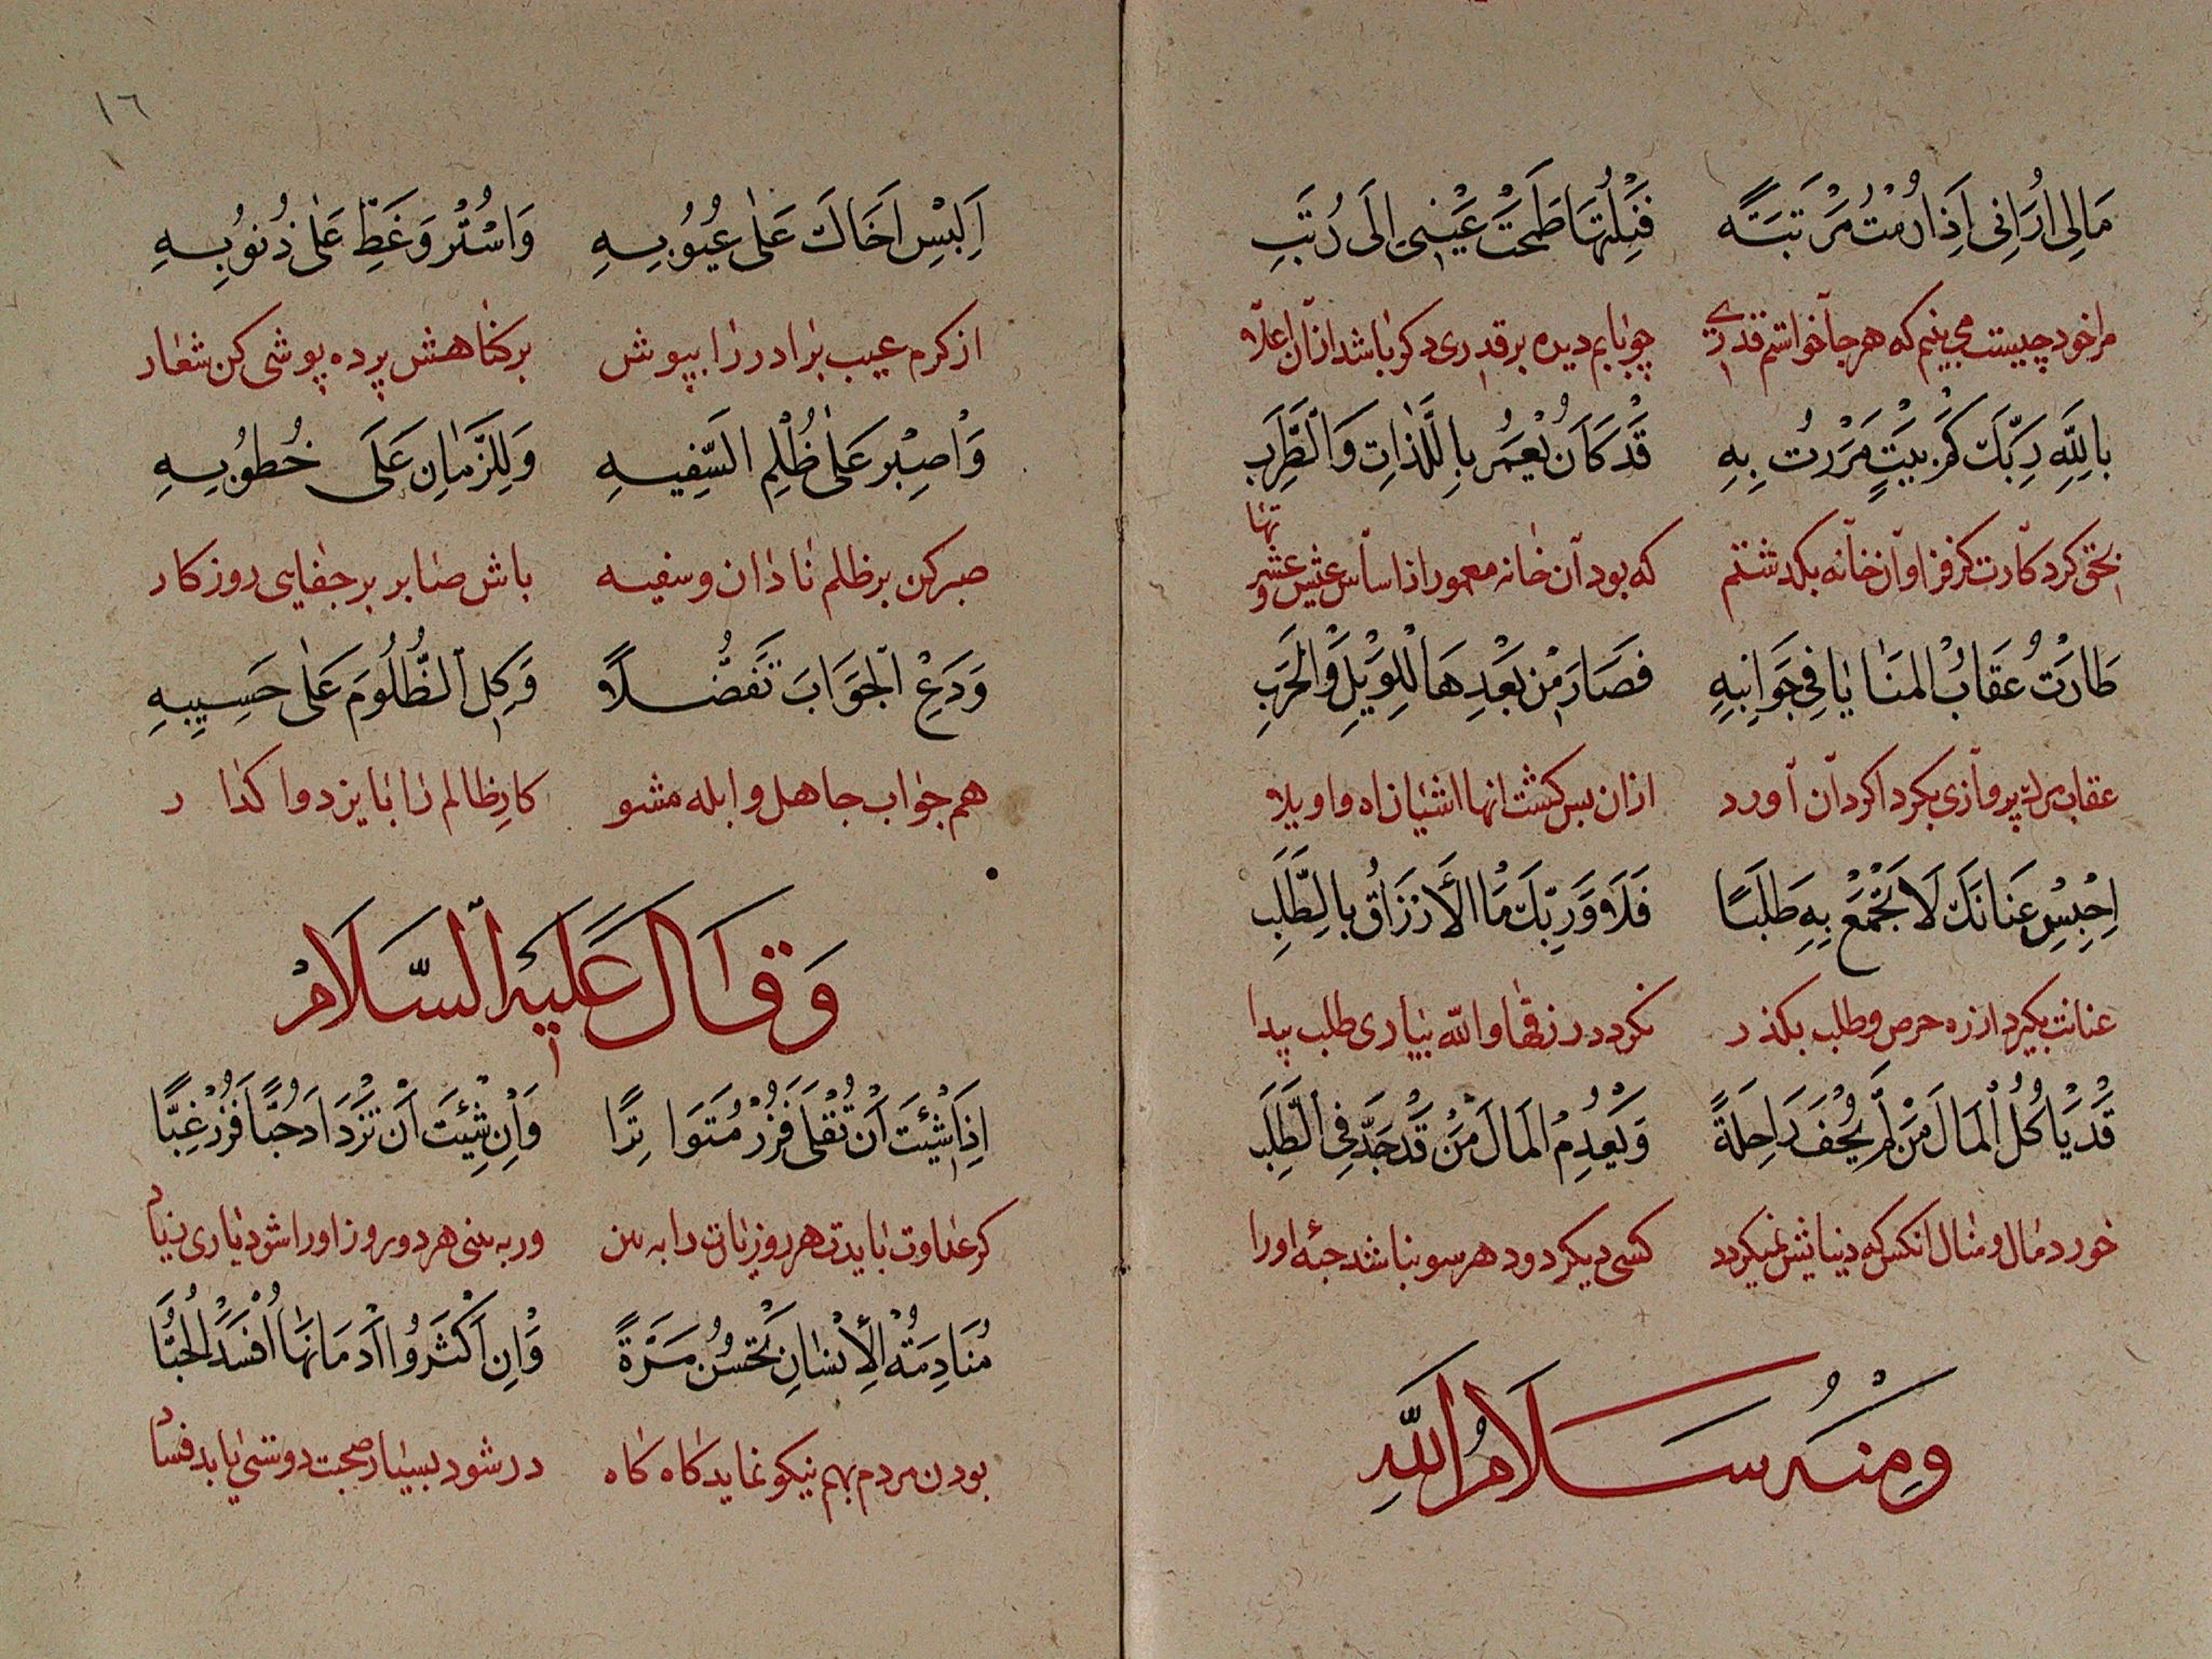 مَالِي اَرَانِی اِذَا رُمْتُ مَرْتَبَةً فَنِلْتُهَا طَمَحَتْ عَيْنِی اِلَى رُتَبِ
مرا خود چیست می بینم که هر جا خواستم قدری چو یابم دیده بر قدری دکر باشد ازان اعلا
بِاللهِ رَبِّكَ كَمْ بَيْتٍ مَرَرْتُ بِهِ قَدْ كَانَ يُعْمَرُ بِاللَّذَاتِ وَالطَّرَبِ
بحق کردکارت کز فراوان خانه بکدشتم که بود آن خانه معمور از اساس عیش و عشرتها
طَارَتْ عُقَابُ المَنَايَا فِي جَوَانِبِهِ فَصَارَ مِنْ بَعْدِهَا لِلْوَيْلِ وَالْحَرَبِ
عقاب مرك پروازی بکرداکرد آن آورد ازان بس کشت انها اشیان اه و اویلا
اِحْبِسْ عِنَانَكَ لَا تَجْمَعْ بِهِ طَلَبًا فَلَا وَرَبِّكَ مَا الأَرْزَاقُ بِالطَّلَبِ
عنانت بکیر و از ره حرص و طلب بکذر نکردد رزقها والله بیاری طلب پیدا
قَدْ يَأكُلُ الْمَالَ مَنْ لَمْ يُحْفِ رَاحِلَةً وَيَعْدِمُ الْمَالَ مَنْ قَدْ جَدَّ فِي الطَّلَبِ
خورد مال و منال انکس که دنبالش نمیکردد کسی دیکر دود هر سو نباشد حبّه اورا
وَمِنْهُ سَلَامُ اللهِ
١٦
اِلْبِسْ اَخَاكَ عَلٰى عُيُوبِهِ وَاسْتُرْ وَغَطِّ عَلٰى ذُنُوبِهِ
از کرم عیب برادر را بپوش بر کناهش پرده پوشی کن شعار
وَاصْبِرْ عَلٰى ظُلْمِ السَّفِيهِ وَلِلزَّمَانِ عَلَى خُطُوبِهِ
صبر کن بر ظلم نادان و سفیه باش صابر بر جفای روزکار
وَدَعِ الْجَوَابَ تَفَضُّلًا وَكِلِ الظَّلُومَ عَلٰى حَسِيبِهِ
هم جواب جاهل و ابله مشو کار ظالم را بایزد واکذار
وَقَالَ عَلَيْهِ السَّلَامُ
اِذَا شِئْتَ اَنْ تُقْلَى فَزُرْ مُتَوَاتِرًا وَاِنْ شِئْتَ اَنْ تَزْدَادَ حُبًّا فَزُرْ غِبًّا
کر عداوت بایدت هر روز یارت را ببین ور به بینی هر دو روز او را شود یاری زیاد
مُنَادَمَةُ الْاِنْسَانِ تَحْسُنُ مَرَّةً وَاِنْ اَكْثَرُوا اِدْمَانَهَا اَفْسَدَ الْحُبَّا
بودن مردم بهم نیکو نماید کاه کاه در شود بسیار صحبت دوستی یابد فساد